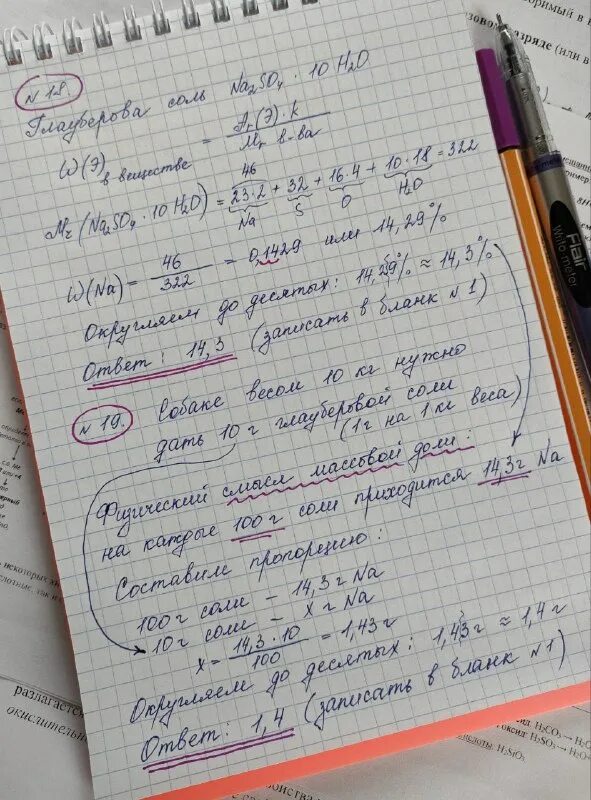 № 18
Глауберова соль Na₂SO₄ · 10 H₂O
W(Э) в веществе = Ar(Э) · k / Mr в-ва
46
Mr(Na₂SO₄ · 10 H₂O) = 23·2 + 32 + 16·4 + 10·18 = 322
Na S O H₂O
W(Na) = 46/322 = 0,1429 или 14,29%
Округляем до десятых: 14,29% ≈ 14,3%
Ответ: 14,3 (записать в бланк №1)
№ 19. Собаке весом 10 кг нужно
дать 10 г глауберовой соли
(1г на 1 кг веса)
Физический смысл массовой доли:
на каждые 100 г соли приходится 14,3г Na
Составим пропорцию:
100г соли – 14,3 г Na
10г соли – x г Na
x = 14,3 · 10 / 100 = 1,43г
Округляем до десятых: 1,43г ≈ 1,4 г
Ответ: 1,4 (записать в бланк №1)
Flair
Writo-meter
разряде (или в
разлагается
окислительн
H₂CO₃
H₂SO₃
H₂SiO₃